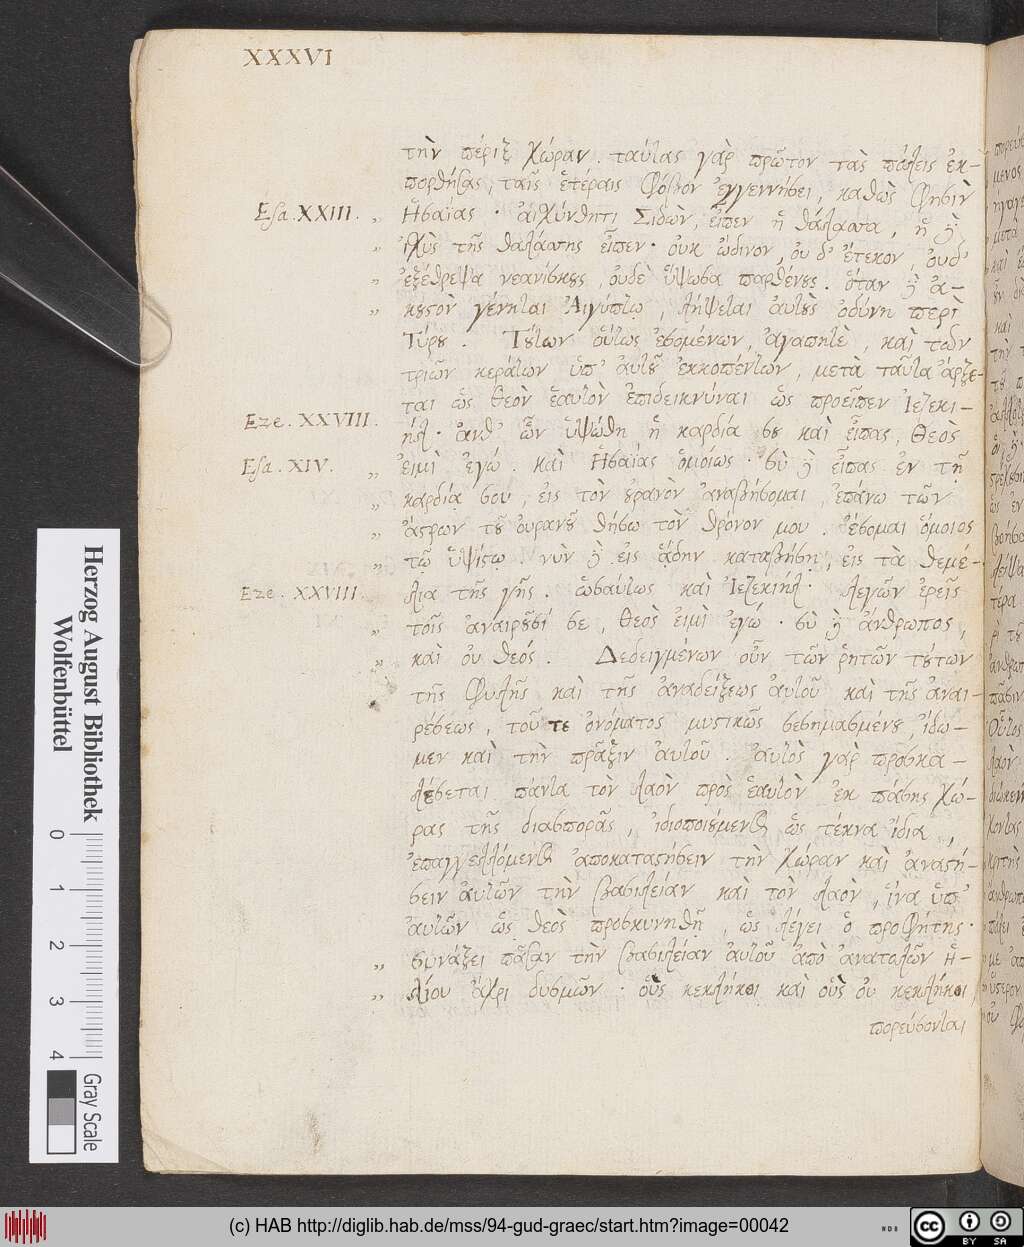 XXXVI
τὴν πέριξ χώραν. ταύτας γὰρ πρῶτον τὰς πόλεις ἐκ-
πορθήσας, ταῖς ἑτέραις φόβον ἐγγεννήσει, καθὼς φησὶν
Esa. XXIII. „ Ἡσαΐας · αἰσχύνθητι Σιδὼν, εἶπεν ἡ θάλασσα, ἡ δὲ
„ ἰσχὺς τῆς θαλάσσης εἶπεν · οὐκ ὤδινον, οὐδ' ἔτεκον, οὐδ'
„ ἐξέθρεψα νεανίσκους, οὐδὲ ὕψωσα παρθένους. ὅταν δὲ ἀ-
„ κουστὸν γένηται Αἰγύπτῳ, λήψεται αὐτοὺς ὀδύνη περὶ
Τύρου. Τούτων οὕτως ἐσομένων, ἀγαπητὲ, καὶ τῶν
τριῶν κεράτων ὑπ' αὐτοῦ ἐκκοπέντων, μετὰ ταῦτα ἄρξε-
ται ὡς Θεὸν ἑαυτὸν ἐπιδεικνύναι ὡς προεῖπεν Ἰεζεκι-
Eze. XXVIII. ήλ · ἀνθ' ὧν ὑψώθη ἡ καρδία σου καὶ εἶπας, Θεὸς
Esa. XIV. „ εἰμὶ ἐγώ. καὶ Ἡσαΐας ὁμοίως · σὺ δὲ εἶπας ἐν τῇ
„ καρδίᾳ σου, εἰς τὸν οὐρανὸν ἀναβήσομαι, ἐπάνω τῶν
„ ἄστρων τοῦ οὐρανοῦ θήσω τὸν θρόνον μου. ἔσομαι ὅμοιος
„ τῷ ὑψίστῳ. νῦν δὲ εἰς ᾅδην καταβήσῃ, εἰς τὰ θεμέ-
Eze. XXVIII. λια τῆς γῆς. ὡσαύτως καὶ Ἰεζεκιήλ · λεγῶν ἐρεῖς
„ τοῖς ἀναιροῦσί σε, Θεὸς εἰμὶ ἐγώ · σὺ δὲ ἄνθρωπος,
„ καὶ οὐ θεός. Δεδειγμένων οὖν τῶν ῥητῶν τούτων
τῆς φυλῆς καὶ τῆς ἀναδείξεως αὐτοῦ καὶ τῆς ἀναι-
ρέσεως, τοῦ τε ὀνόματος μυστικῶς σεσημασμένου, ἴδω-
μεν καὶ τὴν πρᾶξιν αὐτοῦ. αὐτὸς γὰρ προσκα-
λέσεται πάντα τὸν λαὸν πρὸς ἑαυτὸν ἐκ πάσης χώ-
ρας τῆς διασπορᾶς, ἰδιοποιούμενος ὡς τέκνα ἴδια,
ἐπαγγελλόμενος ἀποκαταστήσειν τὴν χώραν καὶ ἀναστή-
σειν αὐτῶν τὴν βασιλείαν καὶ τὸν λαὸν, ἵνα ὑπ'
αὐτῶν ὡς θεὸς προσκυνηθῇ, ὡς λέγει ὁ προφήτης.
„ συνάξει πᾶσαν τὴν βασιλείαν αὐτοῦ ἀπὸ ἀνατολῶν ἡ-
„ λίου ἄχρι δυσμῶν · οὓς κεκλήκει καὶ οὓς οὐ κεκλήκει
πορεύσονται
Herzog August Bibliothek
Wolfenbüttel
0 1 2 3 4
Gray Scale
(c) HAB http://diglib.hab.de/mss/94-gud-graec/start.htm?image=00042
cc BY SA